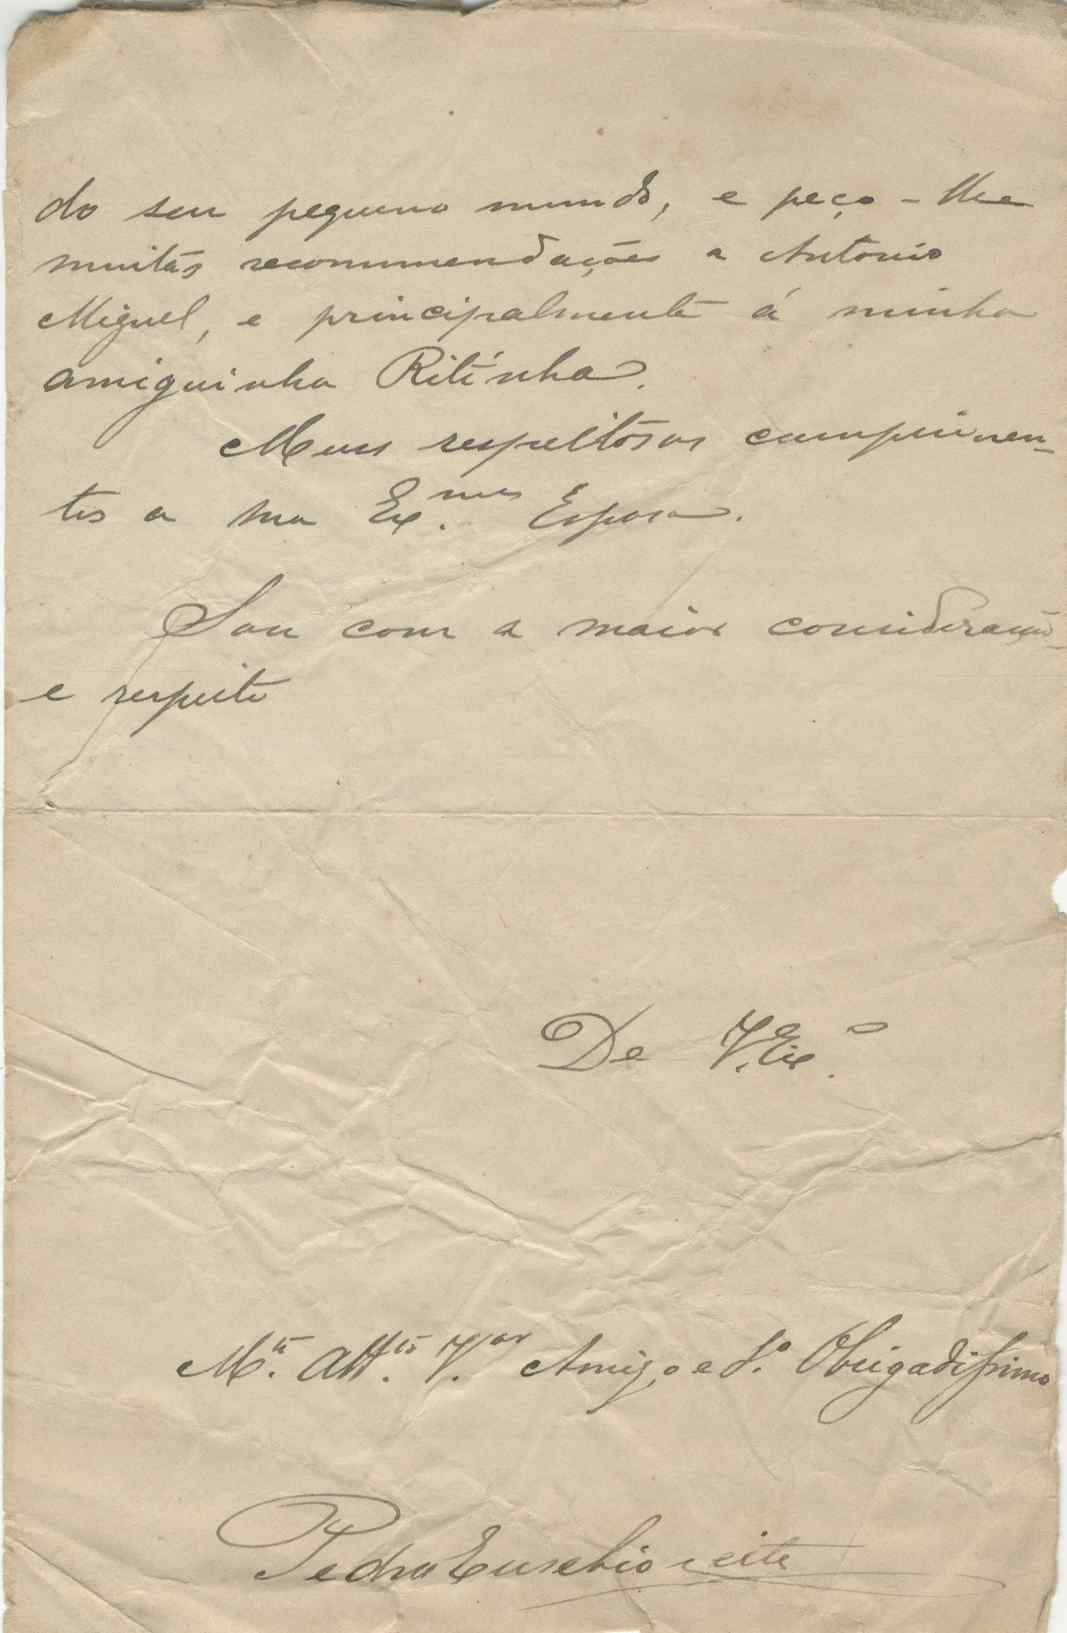 do seu pequeno mundo, e peço-lhe
muitas recommendações a Antonio
Miguel, e principalmente á minha
amiguinha Ritinha.
Meus respeitosos cumprimen-
tes a sua Ex.ma Esposa.
Sou com a maior consideração
e respeito
De V. Ex.a
M.to Att.to V.or Amigo e S.o Obrigadissimo
Pedro Eusebio Leite